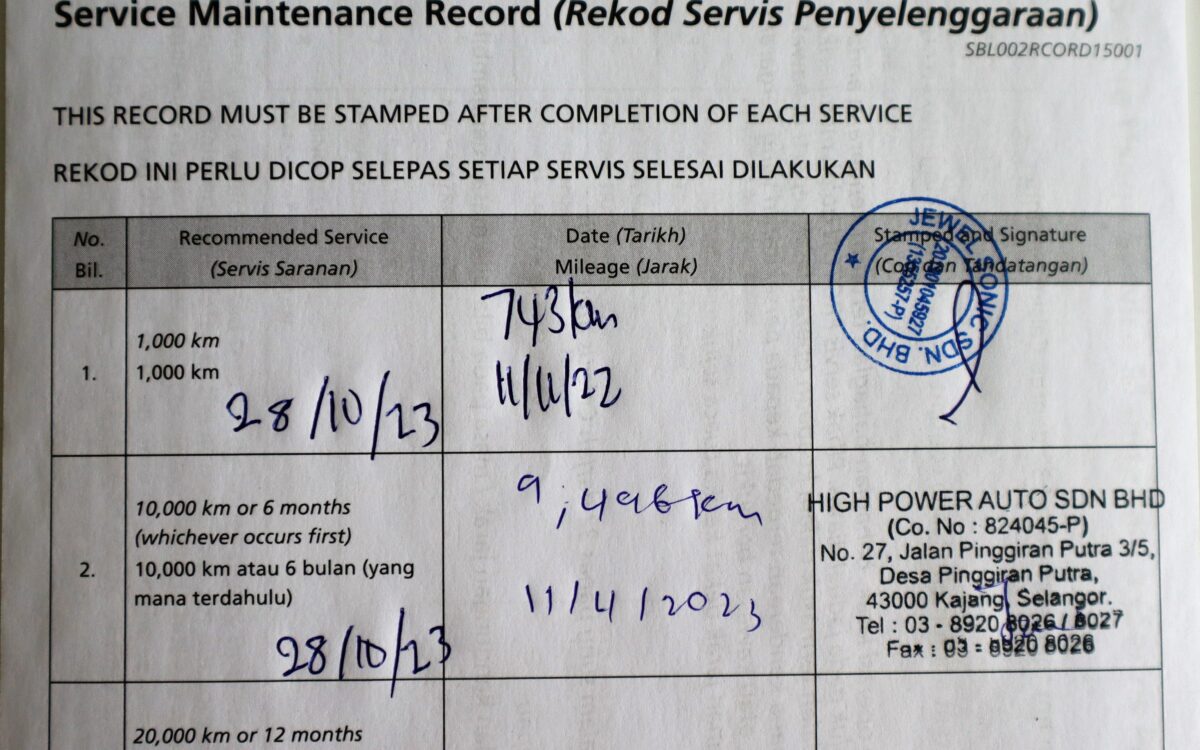 Service Maintenance Record (Rekod Servis Penyelenggaraan)
SBL002RCORD15001
THIS RECORD MUST BE STAMPED AFTER COMPLETION OF EACH SERVICE
REKOD INI PERLU DICOP SELEPAS SETIAP SERVIS SELESAI DILAKUKAN
No.
Bil.
Recommended Service
(Servis Saranan)
Date (Tarikh)
Mileage (Jarak)
Stamped and Signature
(Cop dan Tandatangan)
JEWEL SONIC SDN. BHD.
(1365257-P)
1.
1,000 km
1,000 km
28/10/23
743km
11/11/22
2.
10,000 km or 6 months
(whichever occurs first)
10,000 km atau 6 bulan (yang
mana terdahulu)
28/10/23
9,496km
11/4/2023
HIGH POWER AUTO SDN BHD
(Co. No : 824045-P)
No. 27, Jalan Pinggiran Putra 3/5,
Desa Pinggiran Putra,
43000 Kajang, Selangor.
Tel : 03 - 8920 8026 / 8027
Fax : 03 - 8920 8026
20,000 km or 12 months